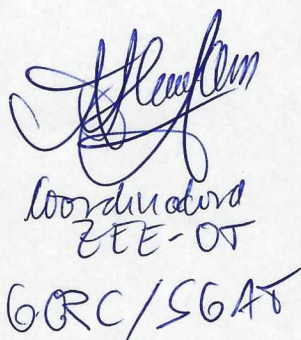 Coordinadora
ZEE-OT
GORC/SGAT